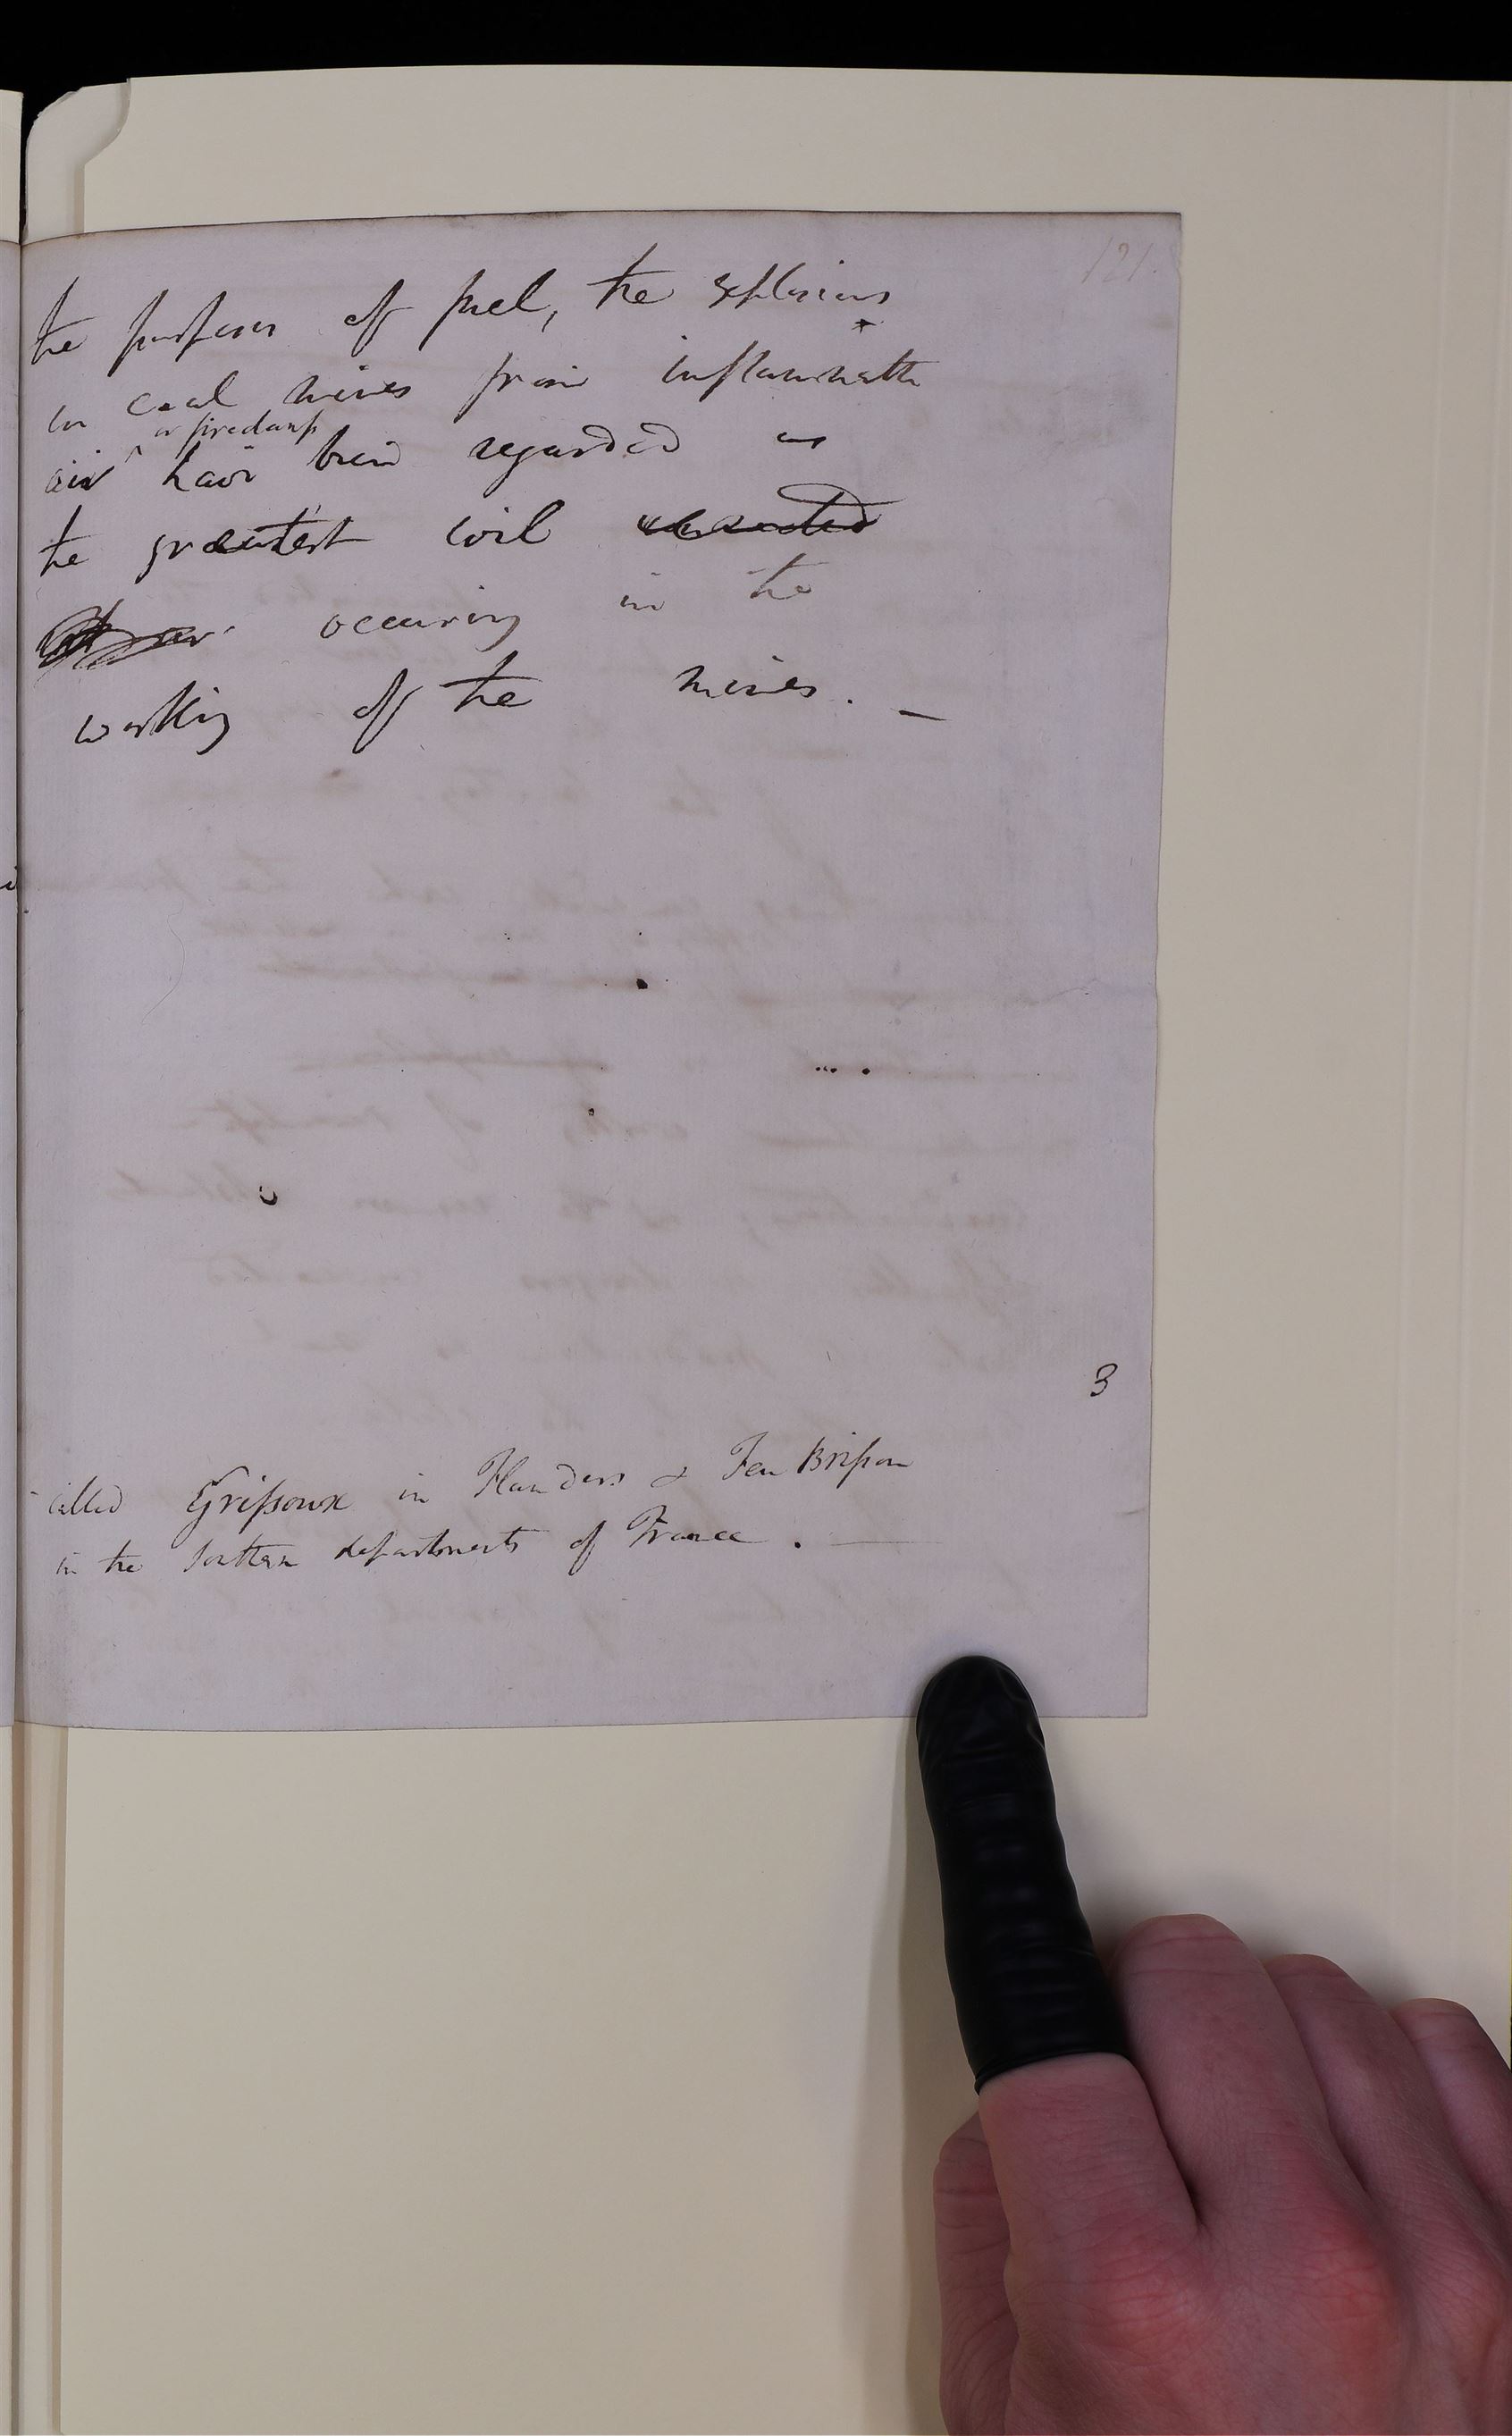 121.
the purposes of fuel, the explosions
in coal mines from inflammable
or firedamp
air ^ have been regarded as
the greatest evil
occuring in the
working of the mines. –
3
called Grisoux in Flanders & Feu Brison
in the Southern departments of France. —